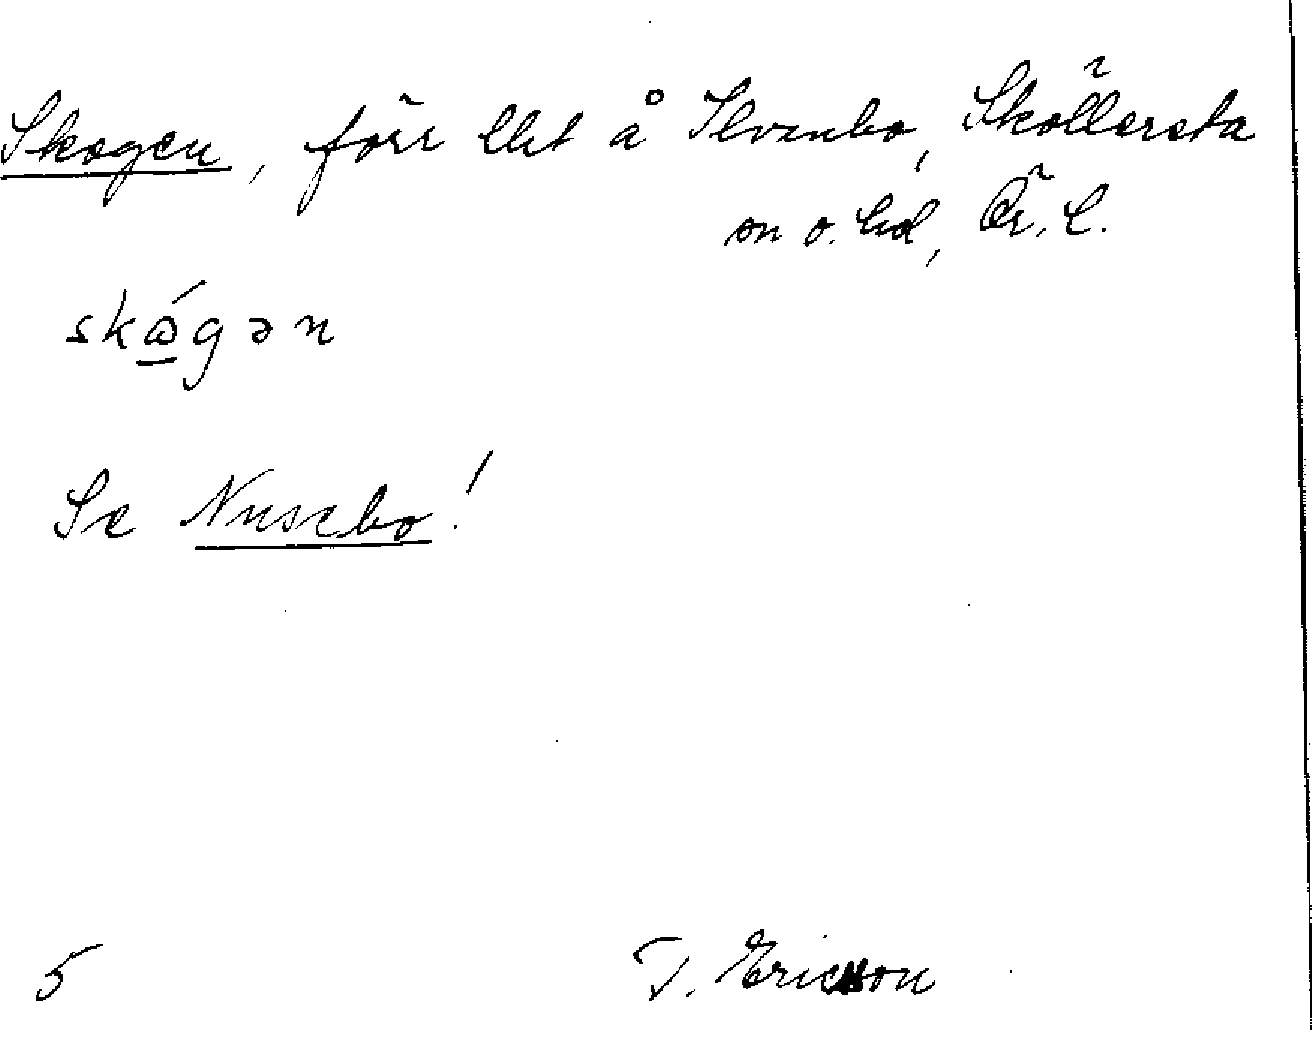 Skogen, förr lht å Ilvenbo, Sköllersta
sn o. hd, Ör. l.
skⱺ́gən
Se Nusebo!
5 T. Ericsson